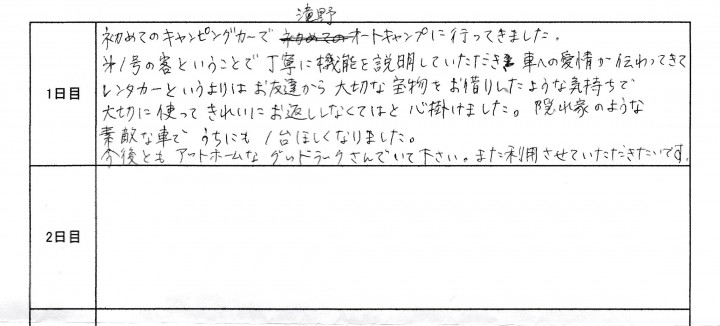 滝野
初めてのキャンピングカーで 初めての オートキャンプに行ってきました。
1日目
第1号の客ということで 丁寧に機能を説明していただき 車への愛情が伝わってきて
レンタカーというよりは お友達から 大切な宝物をお借りしたような気持ちで
大切に使って きれいにお返ししなくてはと 心掛けました。 隠れ家のような
素敵な車で うちにも 1台ほしくなりました。
今後とも アットホームな グッドラークさんでいて下さい。また利用させていただきたいです。
2日目